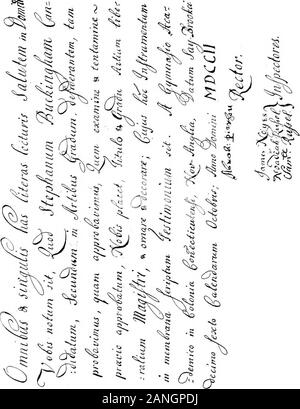 Omnibus & singulis has literas lecturis Salutem in Domino
Vobis notum sit, Quod Stephanum Buckingham Can=
:didatum, Secundum in Artibus Gradum, desiderantem, tam
probavimus, quam approbavimus, Quem examine & tentamine
prævio approbatum, Nobis placet, Titulo & Gradu Artium Libe=
:ralium Magistri, & ornare & decorare; Cujus hoc Instrumentum
in membrana scriptum Testimonium sit. A Gymnasio Aca=
:demico in Colonia Connecticutensi, Nov-Anglia, Datum Say-Brooki
decimo sexto Calendarum Octobris, Anno Domini MDCCII
Rector.
James Noyes
Noadiah Russel
Inspectores.